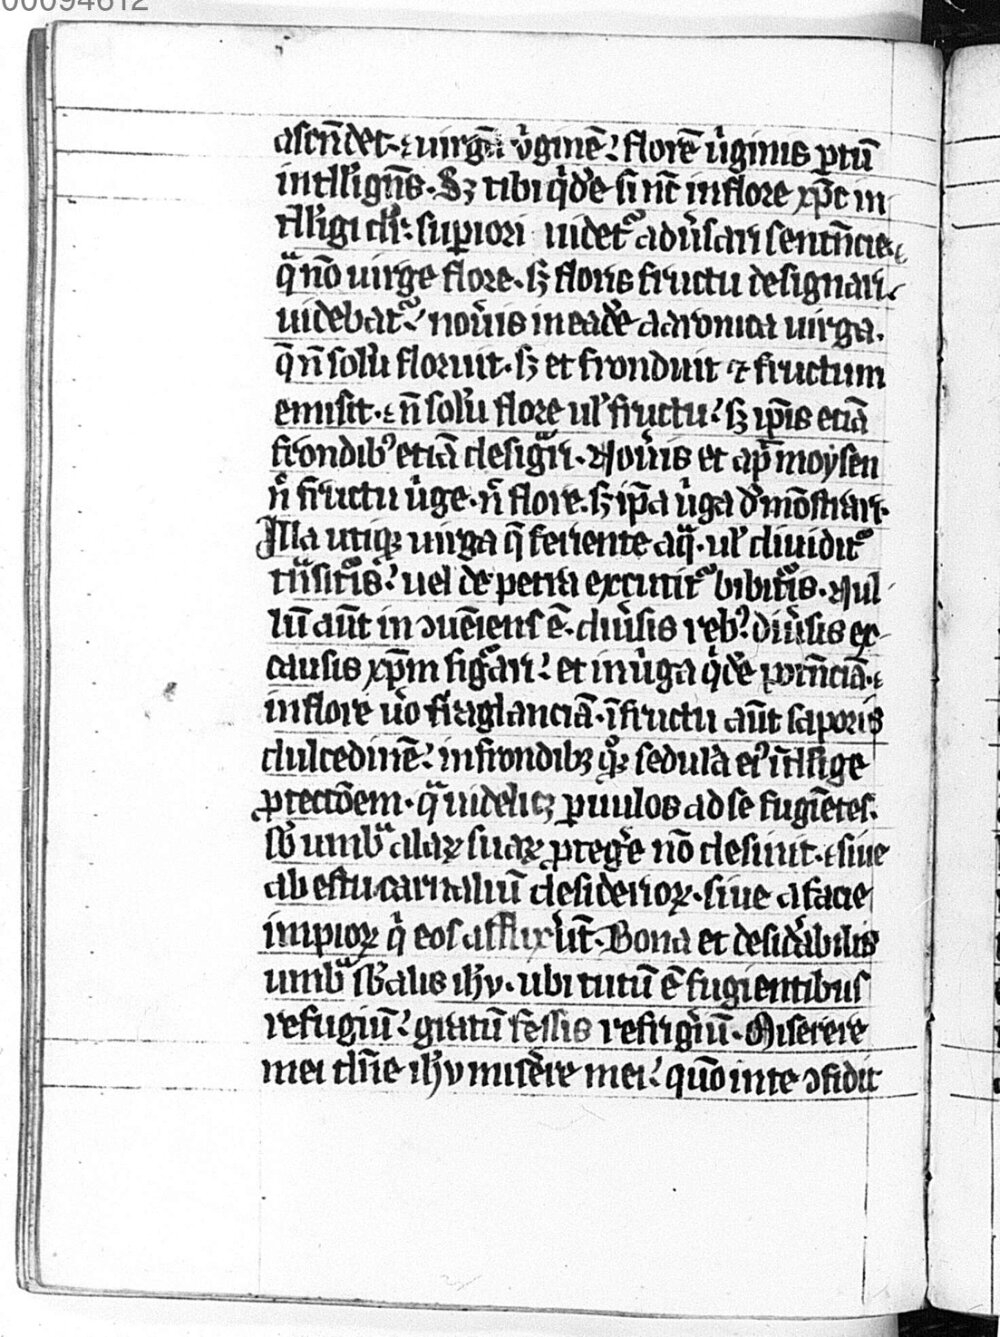 00094612
ascēdet· ⁊ uirgā v̾ginē? florē u̾ginis ꝑtū
intll'ignēs· Sꝫ tibi q̇dē si nc̄ in flore xp̄c in
tll'igi dr̄· supiori uidet᷑ adu̾sari sentn̄cie·
q̄ nō uirge flore· sꝫ floris fructu designari
uidebat᷑? nou̾is in eadē aaronica uirga·
q̄ n̄ solū floruit· sꝫ et fronduit ⁊ fructum
emisit· ⁊ n̄ solū flore ul' fructu? sꝫ ip̄is etiā
frondib᷒ etiā desigᷓri· Nou̾is et ap̄ moysen
n̄ fructu u̾ge· n̄ flore· sꝫ ip̄a u̾ga dmōstrari·
Illa utiqꝫ uirga q̄ feriente aq̄· ul' diuidit᷑
tᷓnsitᷣis? uel de petra excutit᷑ bibitᷣis· Nul
lū aūt inꝯueniens ē· diu̾sis reb᷒ diu̾sis ex
causis xp̄m figᷓri? et in u̾ga q̇dē potn̄ciā·
in flore u̾o fraglanciā· ī fructu aūt saporis
dulcedinē? in frondibꝫ qͦqꝫ sedulā ei᷒ intll'ige
ꝓtectōem· qᷓ uidelicꝫ ꝑuulos ad se fugiētes·
sb̄ umbᷓ alaꝝ suaꝝ ꝓtegēe nō desinit· siue
ab estu carnaliū desiderioꝝ· siue a facie
impioꝝ q̇ eos afflixer̄t· Bona et desid̾abilis
umbᷓ sb̄ alis ih̄v· ubi tutū ē fugientibus
refugiū? gratū fessis refrigiū· Miserere
mei dn̄e ih̄v miserēe mei? qm̄ in te ꝯfidit